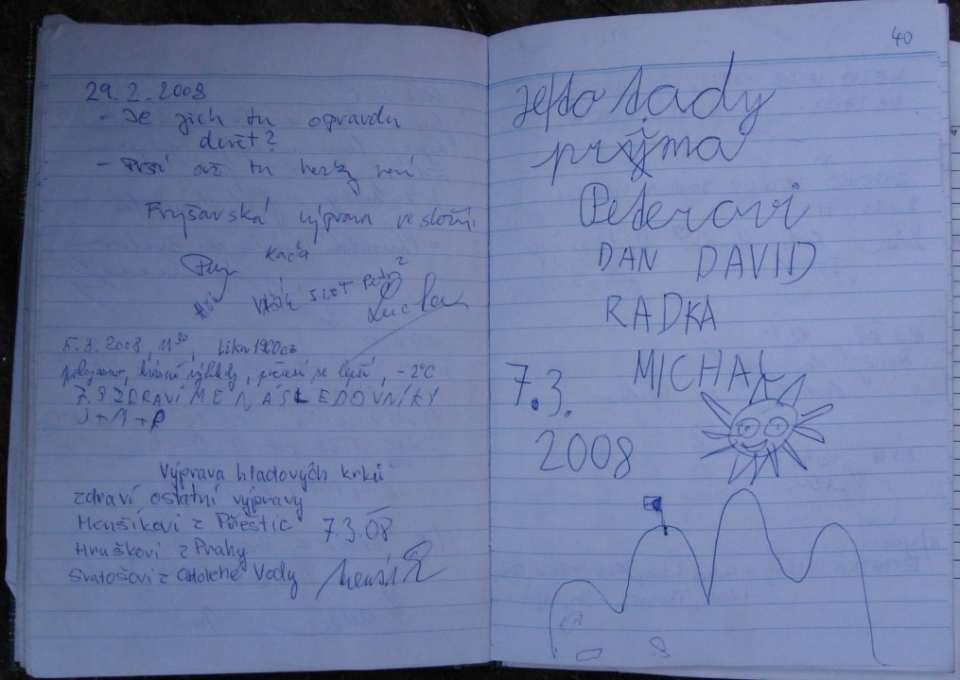 29.2.2008
- Je jich tu opravdu
devět?
- Prší ale tu hezky není
Fryšavská výprava ve složní:
Kača
Vašík
5.3.2008, 11³⁰,
polojasno, krásné výhledy, počasí se lepší, -2°C
7.3 ZDRAVÍME NÁSLEDOVNÍKY
J+M+P
Výprava hladových krků
zdraví ostatní výpravy
Menšíkovi z Přeštic 7.3.08
Hruškovi z Prahy
Svatošovi z Odolene Vody
40
Je to tady
príjma
Peterovi
DAN DAVID
RADKA
MICHAL
7.3.
2008